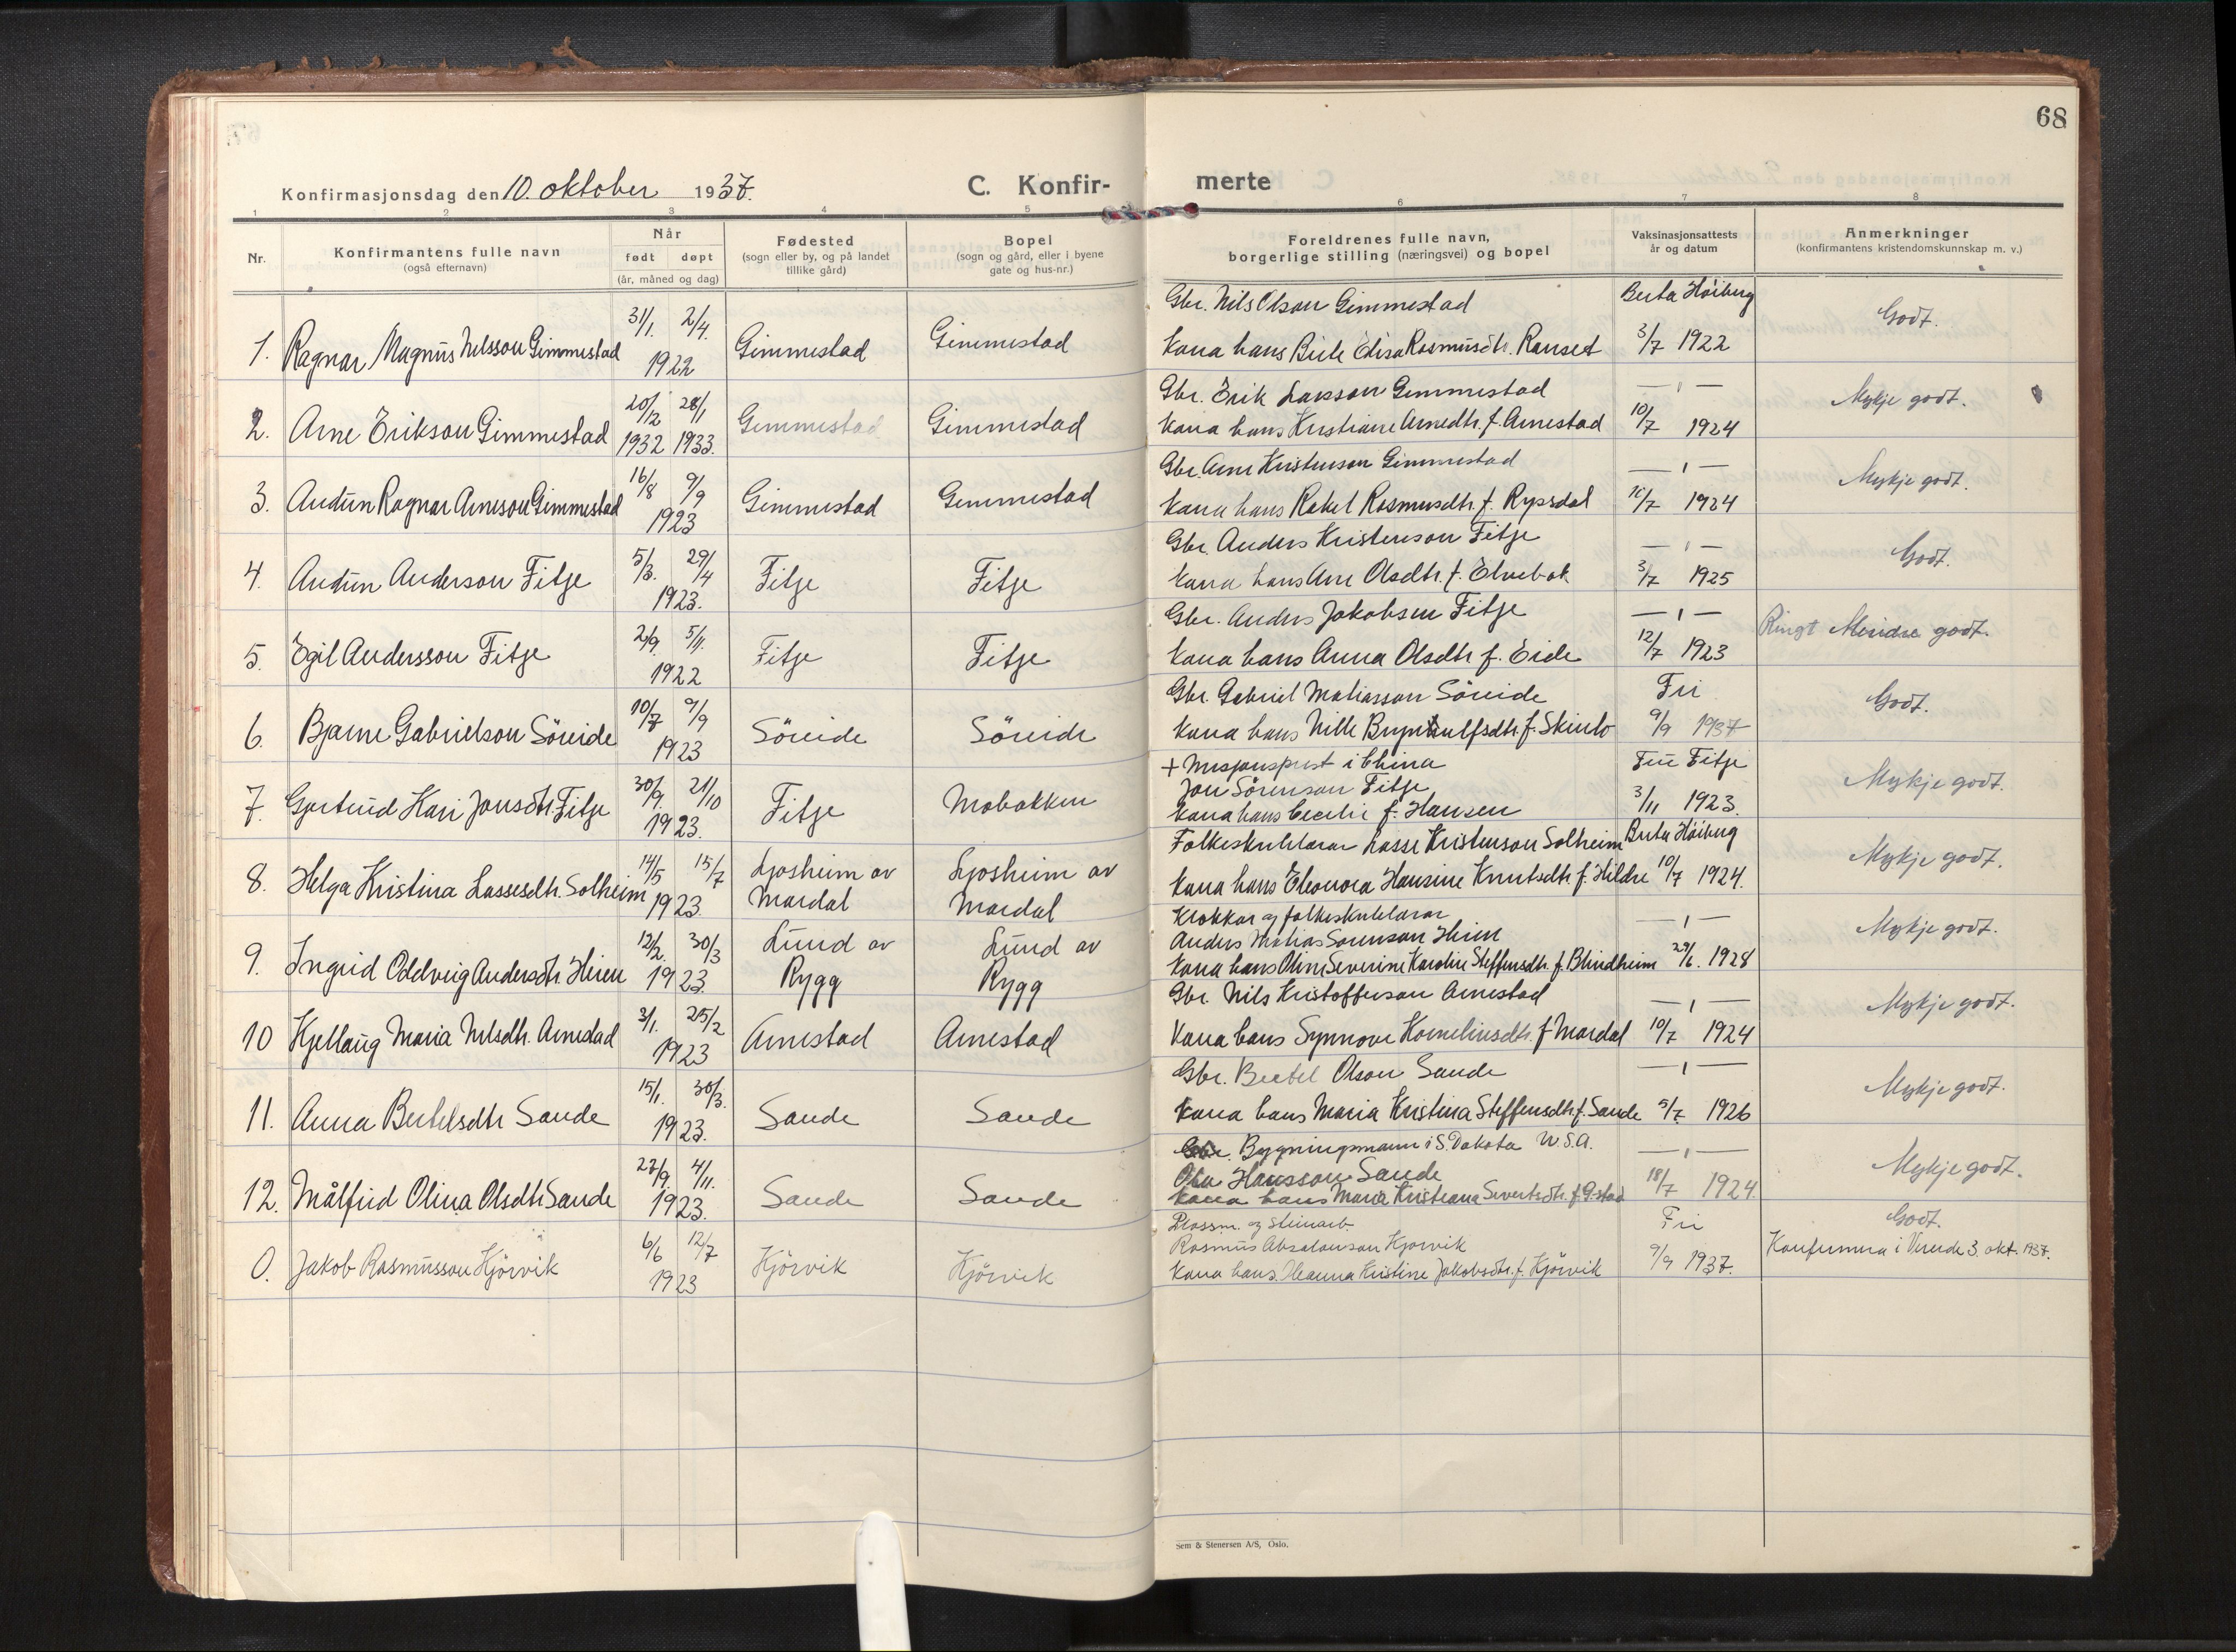 68
Konfirmasjonsdag den 10. oktober 1937.
C. Konfir-
merte
1 2 3 4 5 6 7 8
Nr.
Konfirmantens fulle navn
(også efternavn)
Når
født døpt
(år, måned og dag)
Fødested
(sogn eller by, og på landet
tillike gård)
Bopel
(sogn og gård, eller i byene
gate og hus-nr.)
Foreldrenes fulle navn,
borgerlige stilling (næringsvei) og bopel
Vaksinasjonsattests
år og datum
Anmerkninger
(konfirmantens kristendomskunnskap m. v.)
Gbr. Nils Olson Gimmestad Berta Höiberg
1. Ragnar Magnus Nilsson Gimmestad 31/1. 2/4. 1922 Gimmestad Gimmestad
kona hans Elisa Rasmusdtr. Ranset 3/7 1922 Godt.
Gbr. Erik Larsson Gimmestad — " —
2. Arne Erikson Gimmestad 20/12 1932 28/1 1933. Gimmestad Gimmestad
kona hans Kristiane Arnedtr. f. Arnestad 10/7 1924 Mykje godt.
Gbr. Arne Kristenson Gimmestad — " —
3. Audun Ragnar Arneson Gimmestad 16/8 9/9 1923 Gimmestad Gimmestad
kona hans Rakel Rasmusdtr. f. Rypsdal 10/7 1924 Mykje godt.
Gbr. Anders Kristenson Fitje — " —
4. Audun Anderson Fitje 5/3. 29/4 1923. Fitje Fitje
kona hans Ane Olsdtr. f. Elvebak 3/7 1925 Godt.
Gbr. Anders Jakobsen Fitje — " —
5. Egil Andersson Fitje 2/9. 5/11. 1922 Fitje Fitje
kona hans Anna Olsdtr f. Eide 12/7 1923 Ringt Mindre godt.
Gbr. Gabriel Matiasson Söreide Fri
6. Bjarne Gabrielson Söreide 10/7 9/9 1923 Söreide Söreide
kona hans Nille Brynhulfsdtr. f. Skinlo 9/9 1937 Godt.
+ Misjonsprest i China Fru Fitje
Jon Sörenson Fitje
7. Gjertrud Kari Jonsdtr. Fitje 30/9. 21/10 1923. Fitje Mobakken
kona hans Cecilie f. Hansen 3/11 1923. Mykje godt.
Folkeskulelærar Lasse Kristenson Solheim Berta Höiberg
8. Helga Kristina Lassesdtr. Solheim 14/5 15/7 1923. Ljosheim av Mardal Ljosheim av Mardal
kona hans Eleonora Hansine Knutsdtr f. Hildre 10/7 1924. Mykje godt.
Klokkar og folkeskulelærar — " —
Anders Matias Sörenson Heien
9. Ingrid Oddveig Andersdtr. Heien 12/2. 30/3 1923. Lund av Rygg Lund av Rygg
kona hans Oline Severine Karoline Steffensdtr. f. Blindheim 29/6. 1928 Mykje godt.
Gbr. Nils Kristofferson Arnestad — " —
10 Kjellaug Maria Nilsdtr. Arnestad 3/1. 25/2 1923 Arnestad Arnestad
Kona hans Synnove Korneliusdtr. f. Mardal 10/7 1924 Mykje godt.
Gbr. Bertel Olson Sande — " —
11. Anna Bertelsdtr Sande 15/1. 30/3. 1923. Sande Sande
kona hans Maria Kristina Steffensdtr. f. Sande 5/7. 1926 Mykje godt.
Gbr. Bygningsmann i S. Dakota U.S.A. — " —
Ola Hansson Sande
12. Målfrid Olina Olsdtr Sande 27/9. 4/11. 1923. Sande Sande
kona hans Maria Kristiana Sivertsdtr. f. 18/7 1924. Mykje godt.
Plassm. og steinarb. Fri
Rasmus Absalonson Kjörvik
0. Jakob Rasmusson Kjörvik 6/6 12/7 1923 Kjörvik Kjörvik
kona hans Kristine Jakobsdtr. f. Kjörvik 9/9 1937. Godt.
Konfirmera i Vereide 3. okt. 1937.
Sem & Stenersen A/S, Oslo.